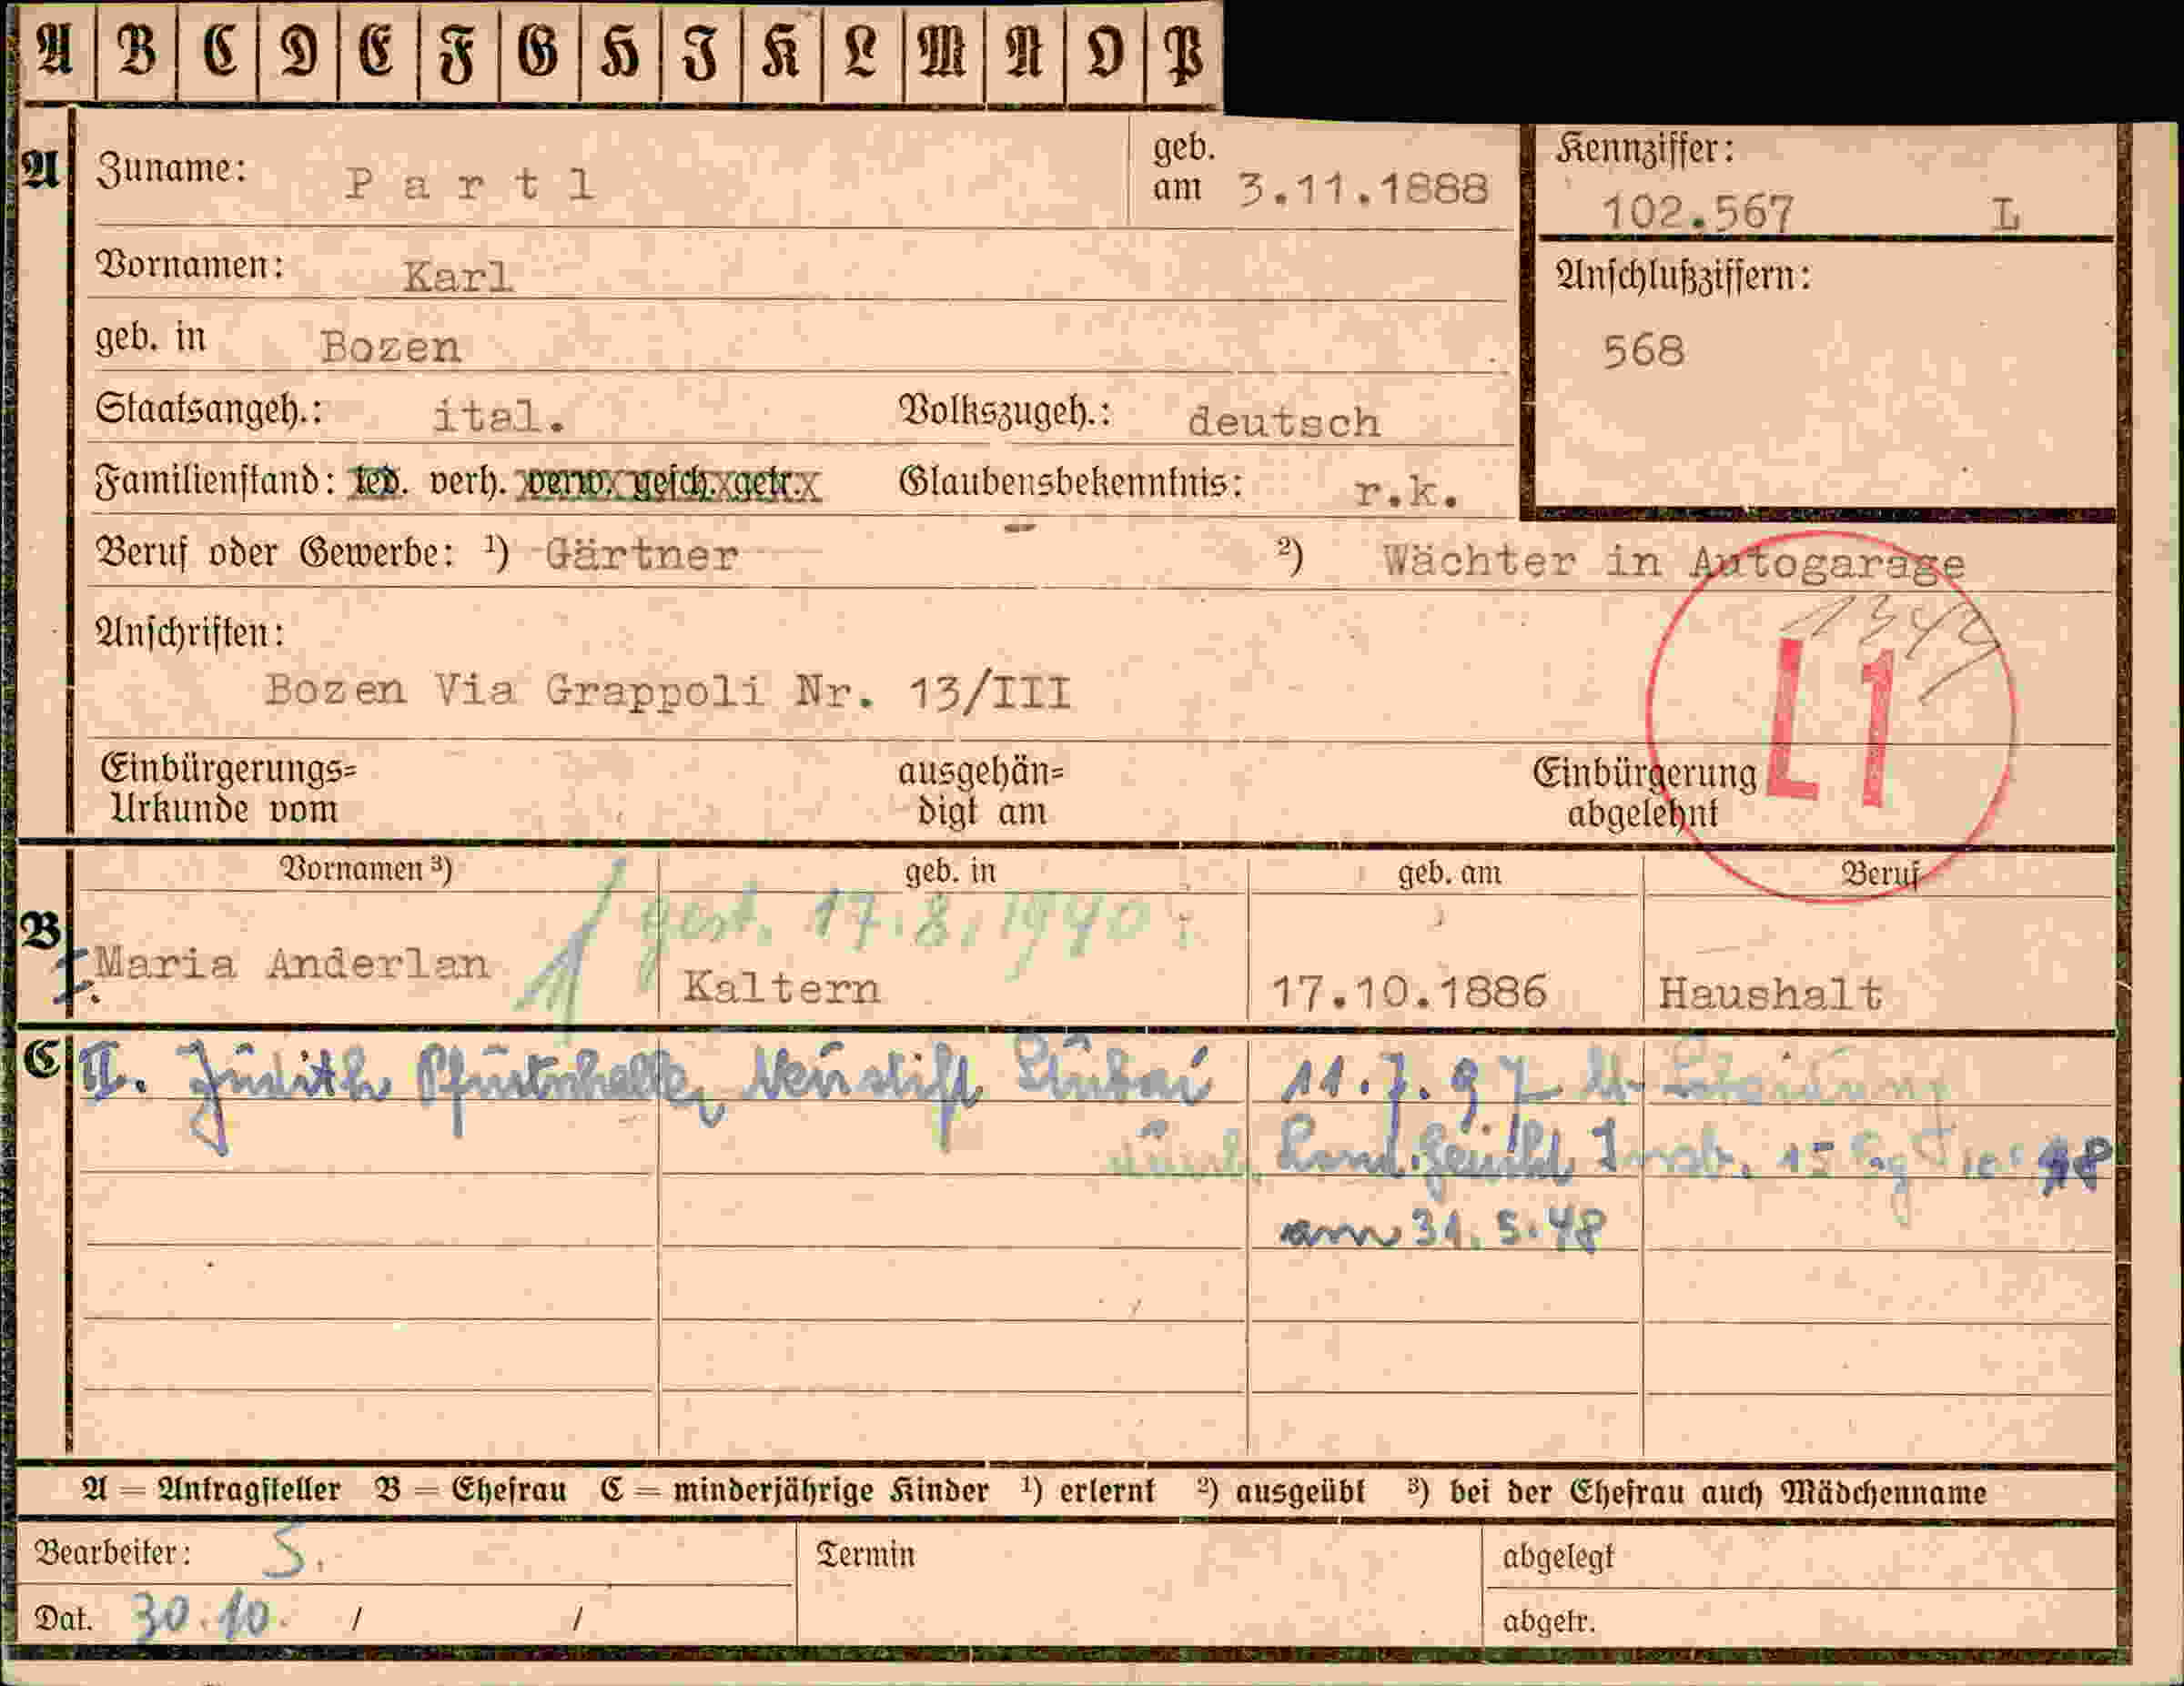 A B C D E F G H I K L M N O P
A Zuname: Partl geb. am 3.11.1888 Kennziffer: 102.567 L
Vornamen: Karl Anschlußziffern:
geb. in Bozen 568
Staatsangeh.: ital. Volkszugeh.: deutsch
Familienstand: led. verh. verw. gesch. getr. Glaubensbekenntnis: r.k.
Beruf oder Gewerbe: ¹) Gärtner ²) Wächter in Autogarage
Anschriften:
L1
Bozen Via Grappoli Nr. 13/III
Einbürgerungs= ausgehän= Einbürgerung
Urkunde vom digt am abgelehnt
Vornamen ³) geb. in geb. am Beruf
gest. 17.8.1940
B Maria Anderlan Kaltern 17.10.1886 Haushalt
C II. Judith Neustift Stubai 11.7.97
am 31.5.48
A = Antragsteller B = Ehefrau C = minderjährige Kinder ¹) erlernt ²) ausgeübt ³) bei der Ehefrau auch Mädchenname
Bearbeiter: S. Termin abgelegt
Dat. 30.10. / / abgetr.